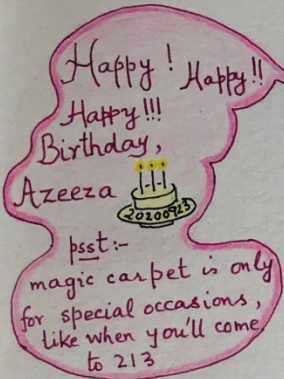 Happy! Happy!!
Happy!!!
Birthday,
Azeeza
20200923
psst:-
magic carpet is only
for special occasions,
like when you'll come
to 213